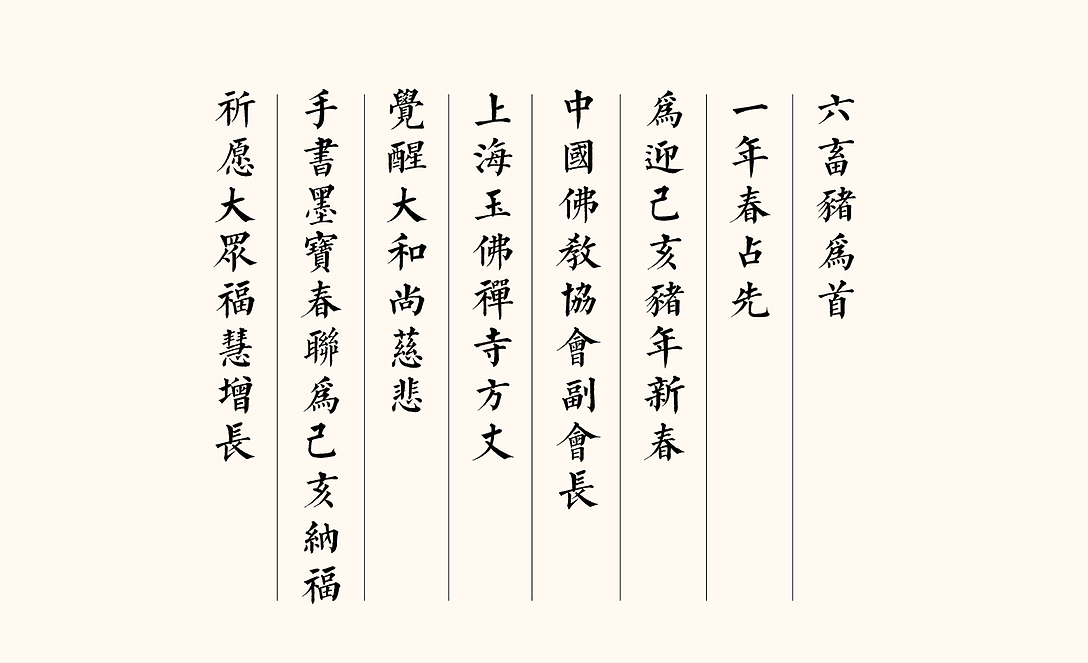 六畜豬爲首
一年春占先
爲迎己亥豬年新春
中國佛教協會副會長
上海玉佛禪寺方丈
覺醒大和尚慈悲
手書墨寶春聯爲己亥納福
祈愿大眾福慧增長